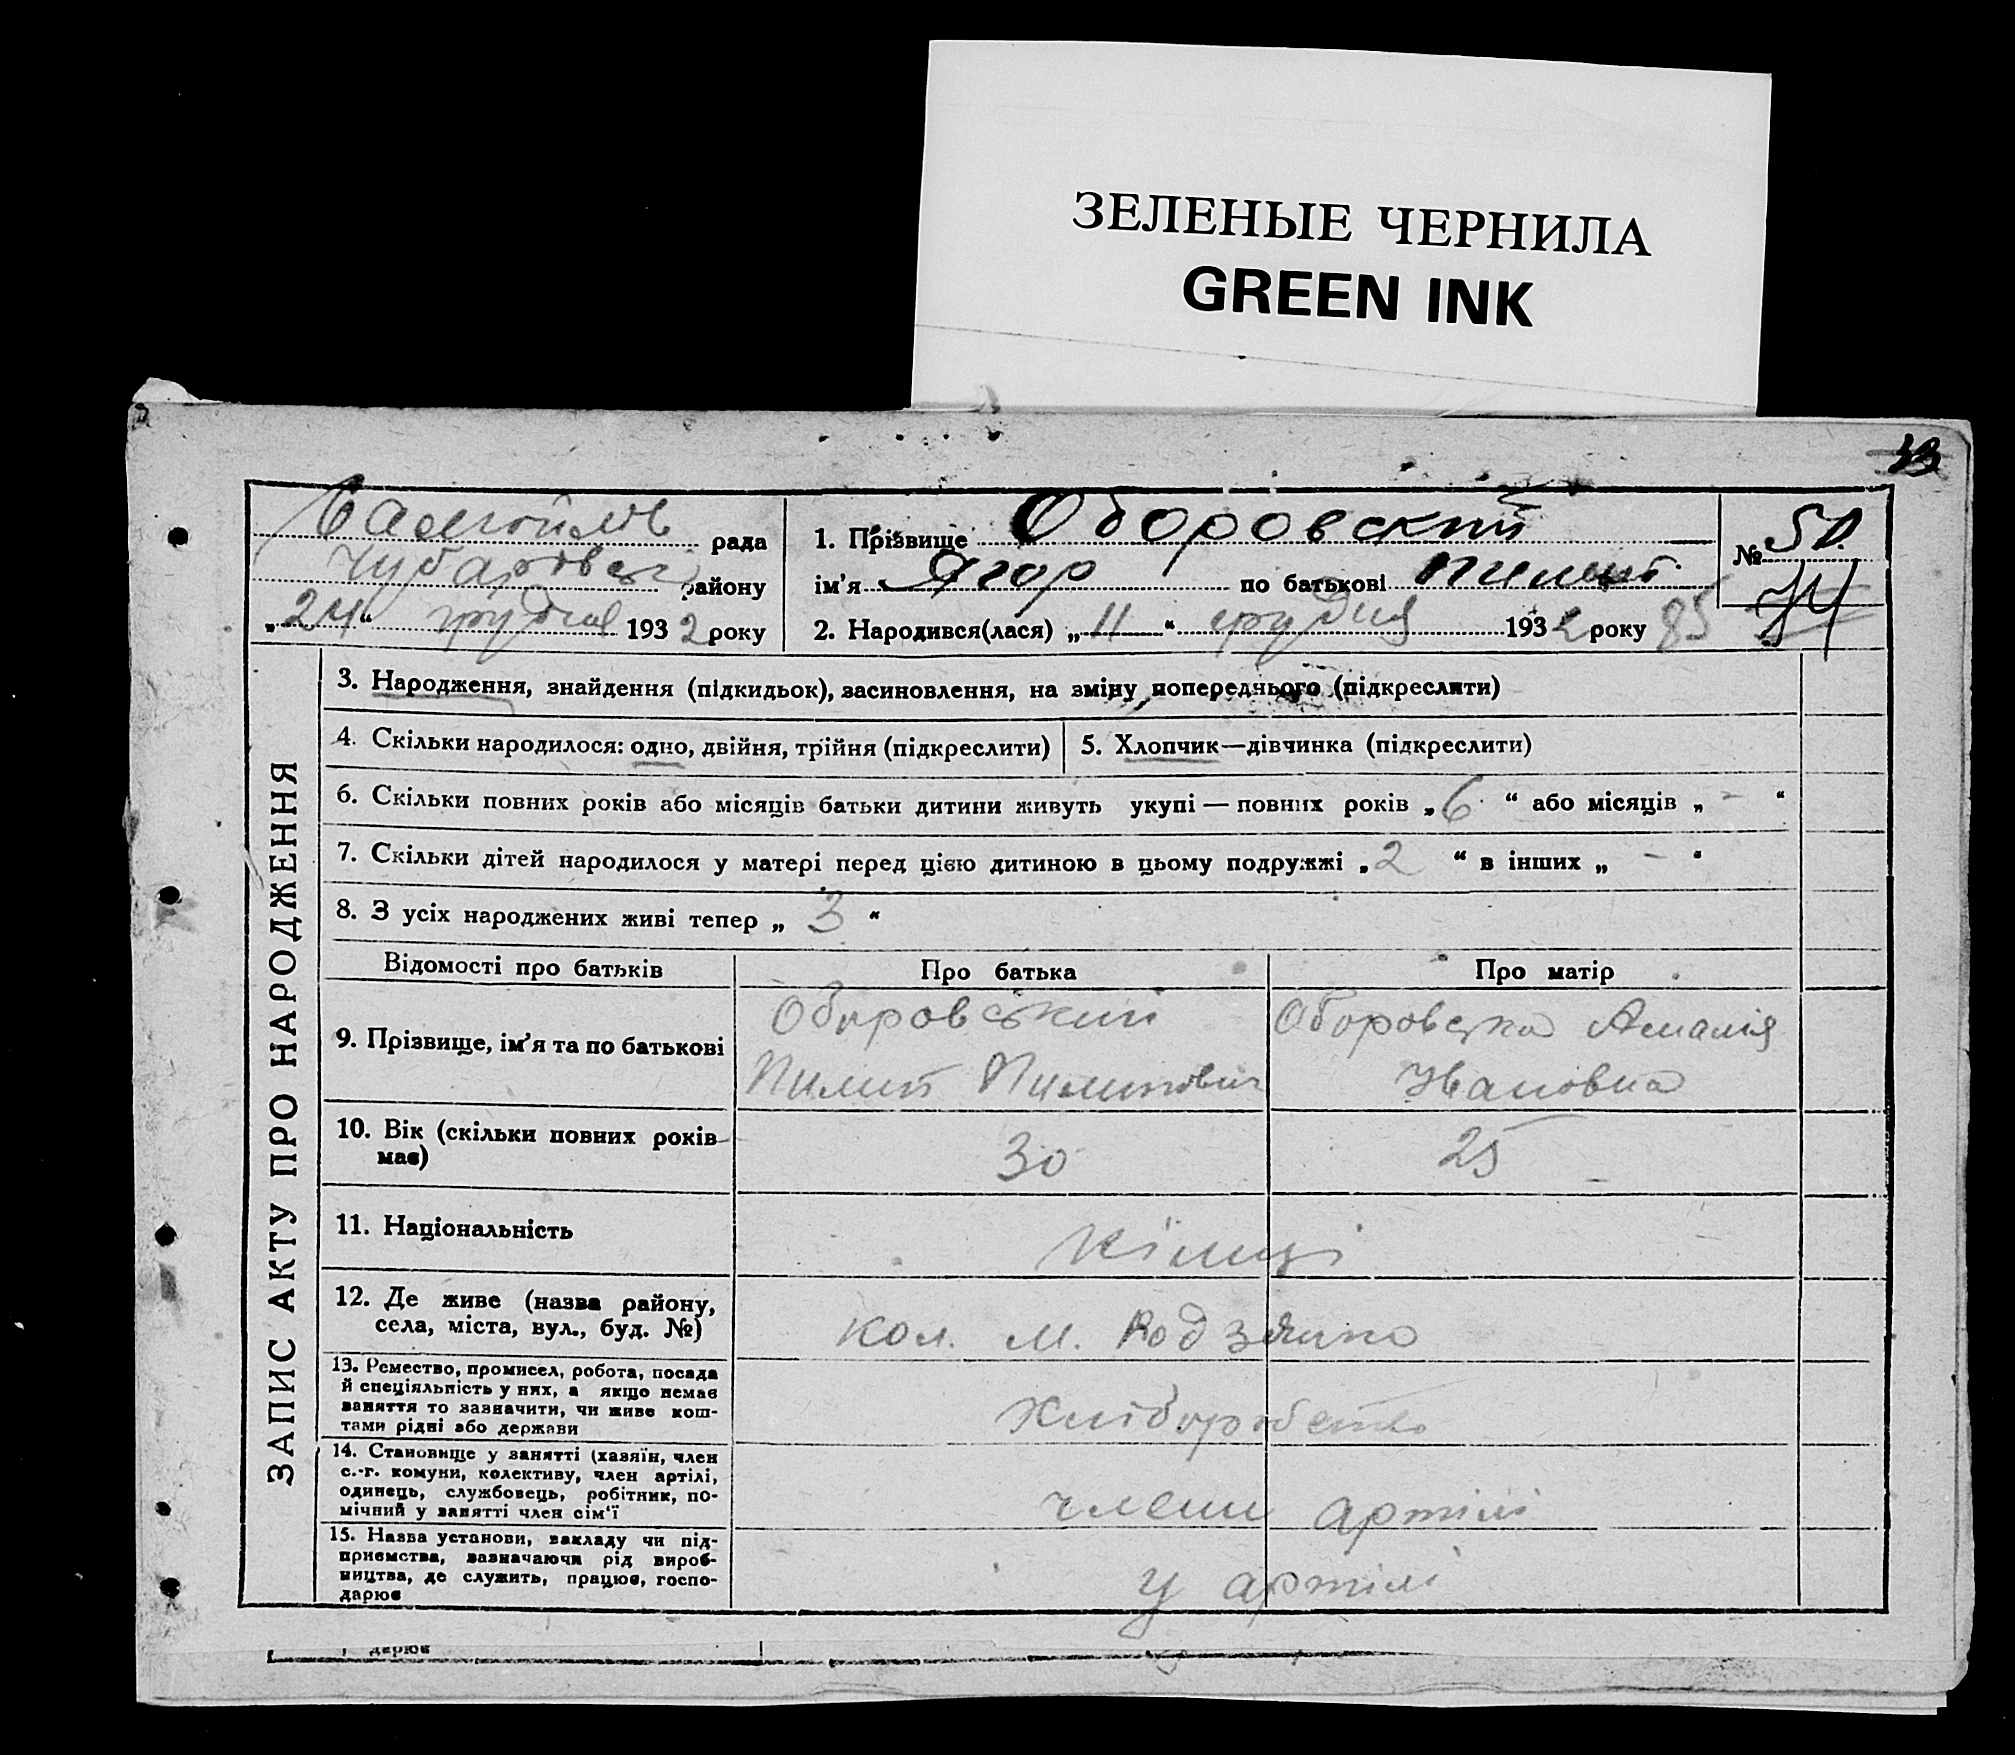 ЗЕЛЕНЫЕ ЧЕРНИЛА
GREEN INK
рада
району
„24“ грудня 1932 року
1. Прізвище Оборовский
ім'я Ягор по батькові Пилип.
2. Народився(лася) „11“ грудня 1932 року 85
№ 50.
74
ЗАПИС АКТУ ПРО НАРОДЖЕННЯ
3. Народження, знайдення (підкидьок), засиновлення, на зміну попереднього (підкреслити)
4. Скільки народилося: одно, двійня, трійня (підкреслити)
5. Хлопчик—дівчинка (підкреслити)
6. Скільки повних років або місяців батьки дитини живуть укупі — повних років „6“ або місяців „-“
7. Скільки дітей народилося у матері перед цією дитиною в цьому подружжі „2“ в інших „-“
8. З усіх народжених живі тепер „3“
Відомості про батьків
Про батька
Про матір
9. Прізвище, ім'я та по батькові
Оборовський
Пилип Пилипович
Оборовська Амалія
Ивановна
10. Вік (скільки повних років
має)
30
25
11. Національність
Німці
12. Де живе (назва району,
села, міста, вул., буд. №)
кол. м. Родзянко
13. Ремество, промисел, робота, посада
й спеціяльність у них, а якщо немає
заняття то зазначити, чи живе кош-
тами рідні або держави
Хліборобство
14. Становище у занятті (хазяїн, член
с.-г. комуни, колективу, член артілі,
одинець, службовець, робітник, по-
мічний у занятті член сім'ї
члени артілі
15. Назва установи, закладу чи під-
приємства, зазначаючи рід вироб-
ництва, де служить, працює, госпо-
дарює
у артілі
дарює